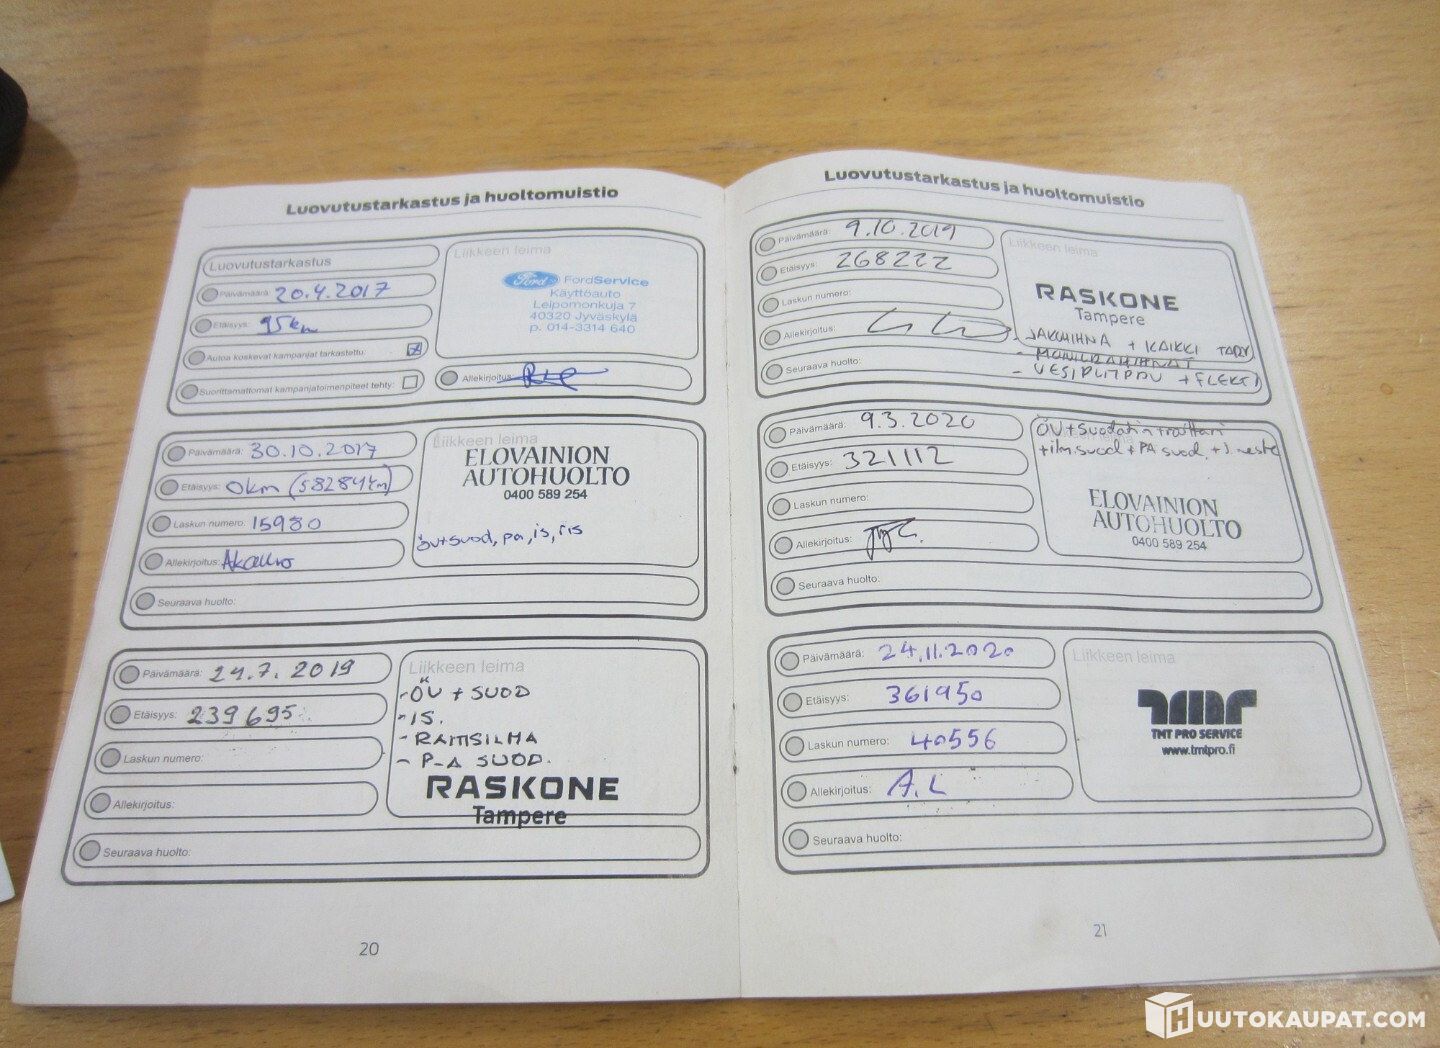 Luovutustarkastus ja huoltomuistio
Luovutustarkastus
Päivämäärä: 20.4.2017
Etäisyys: 95km
Autoa koskevat kampanjat tarkastettu:
Suorittamattomat kampanjatoimenpiteet tehty:
Liikkeen leima
Ford FordService
Käyttöauto
Leipomonkuja 7
40320 Jyväskylä
p. 014-3314 640
Allekirjoitus:
Päivämäärä: 30.10.2017
Etäisyys: 0km (58284km)
Laskun numero: 15980
Allekirjoitus:
Seuraava huolto:
Liikkeen leima
ELOVAINION
AUTOHUOLTO
0400 589 254
öv+suod, pa, is, ris
Päivämäärä: 29.7.2019
Etäisyys: 239695
Laskun numero:
Allekirjoitus:
Seuraava huolto:
Liikkeen leima
-ÖV + SUOD
-IS.
- RAITISILMA
- P-A SUOD.
RASKONE
Tampere
20
Luovutustarkastus ja huoltomuistio
Päivämäärä: 9.10.2019
Etäisyys: 268222
Laskun numero:
Allekirjoitus:
Seuraava huolto:
Liikkeen leima
RASKONE
Tampere
- JAKOHIHNA + KAIKKI
- MONIURAHIHNAT
- VESIPUMPPU +
Päivämäärä: 9.3.2020
Etäisyys: 321112
Laskun numero:
Allekirjoitus:
Seuraava huolto:
Liikkeen leima
ÖV+suodatin+raittari
+ilm.suod+PA suod.+j.neste
ELOVAINION
AUTOHUOLTO
0400 589 254
Päivämäärä: 24.11.2020
Etäisyys: 361950
Laskun numero: 40556
Allekirjoitus: A.L
Seuraava huolto:
Liikkeen leima
TMT PRO SERVICE
www.tmtpro.fi
21
HUUTOKAUPAT.COM